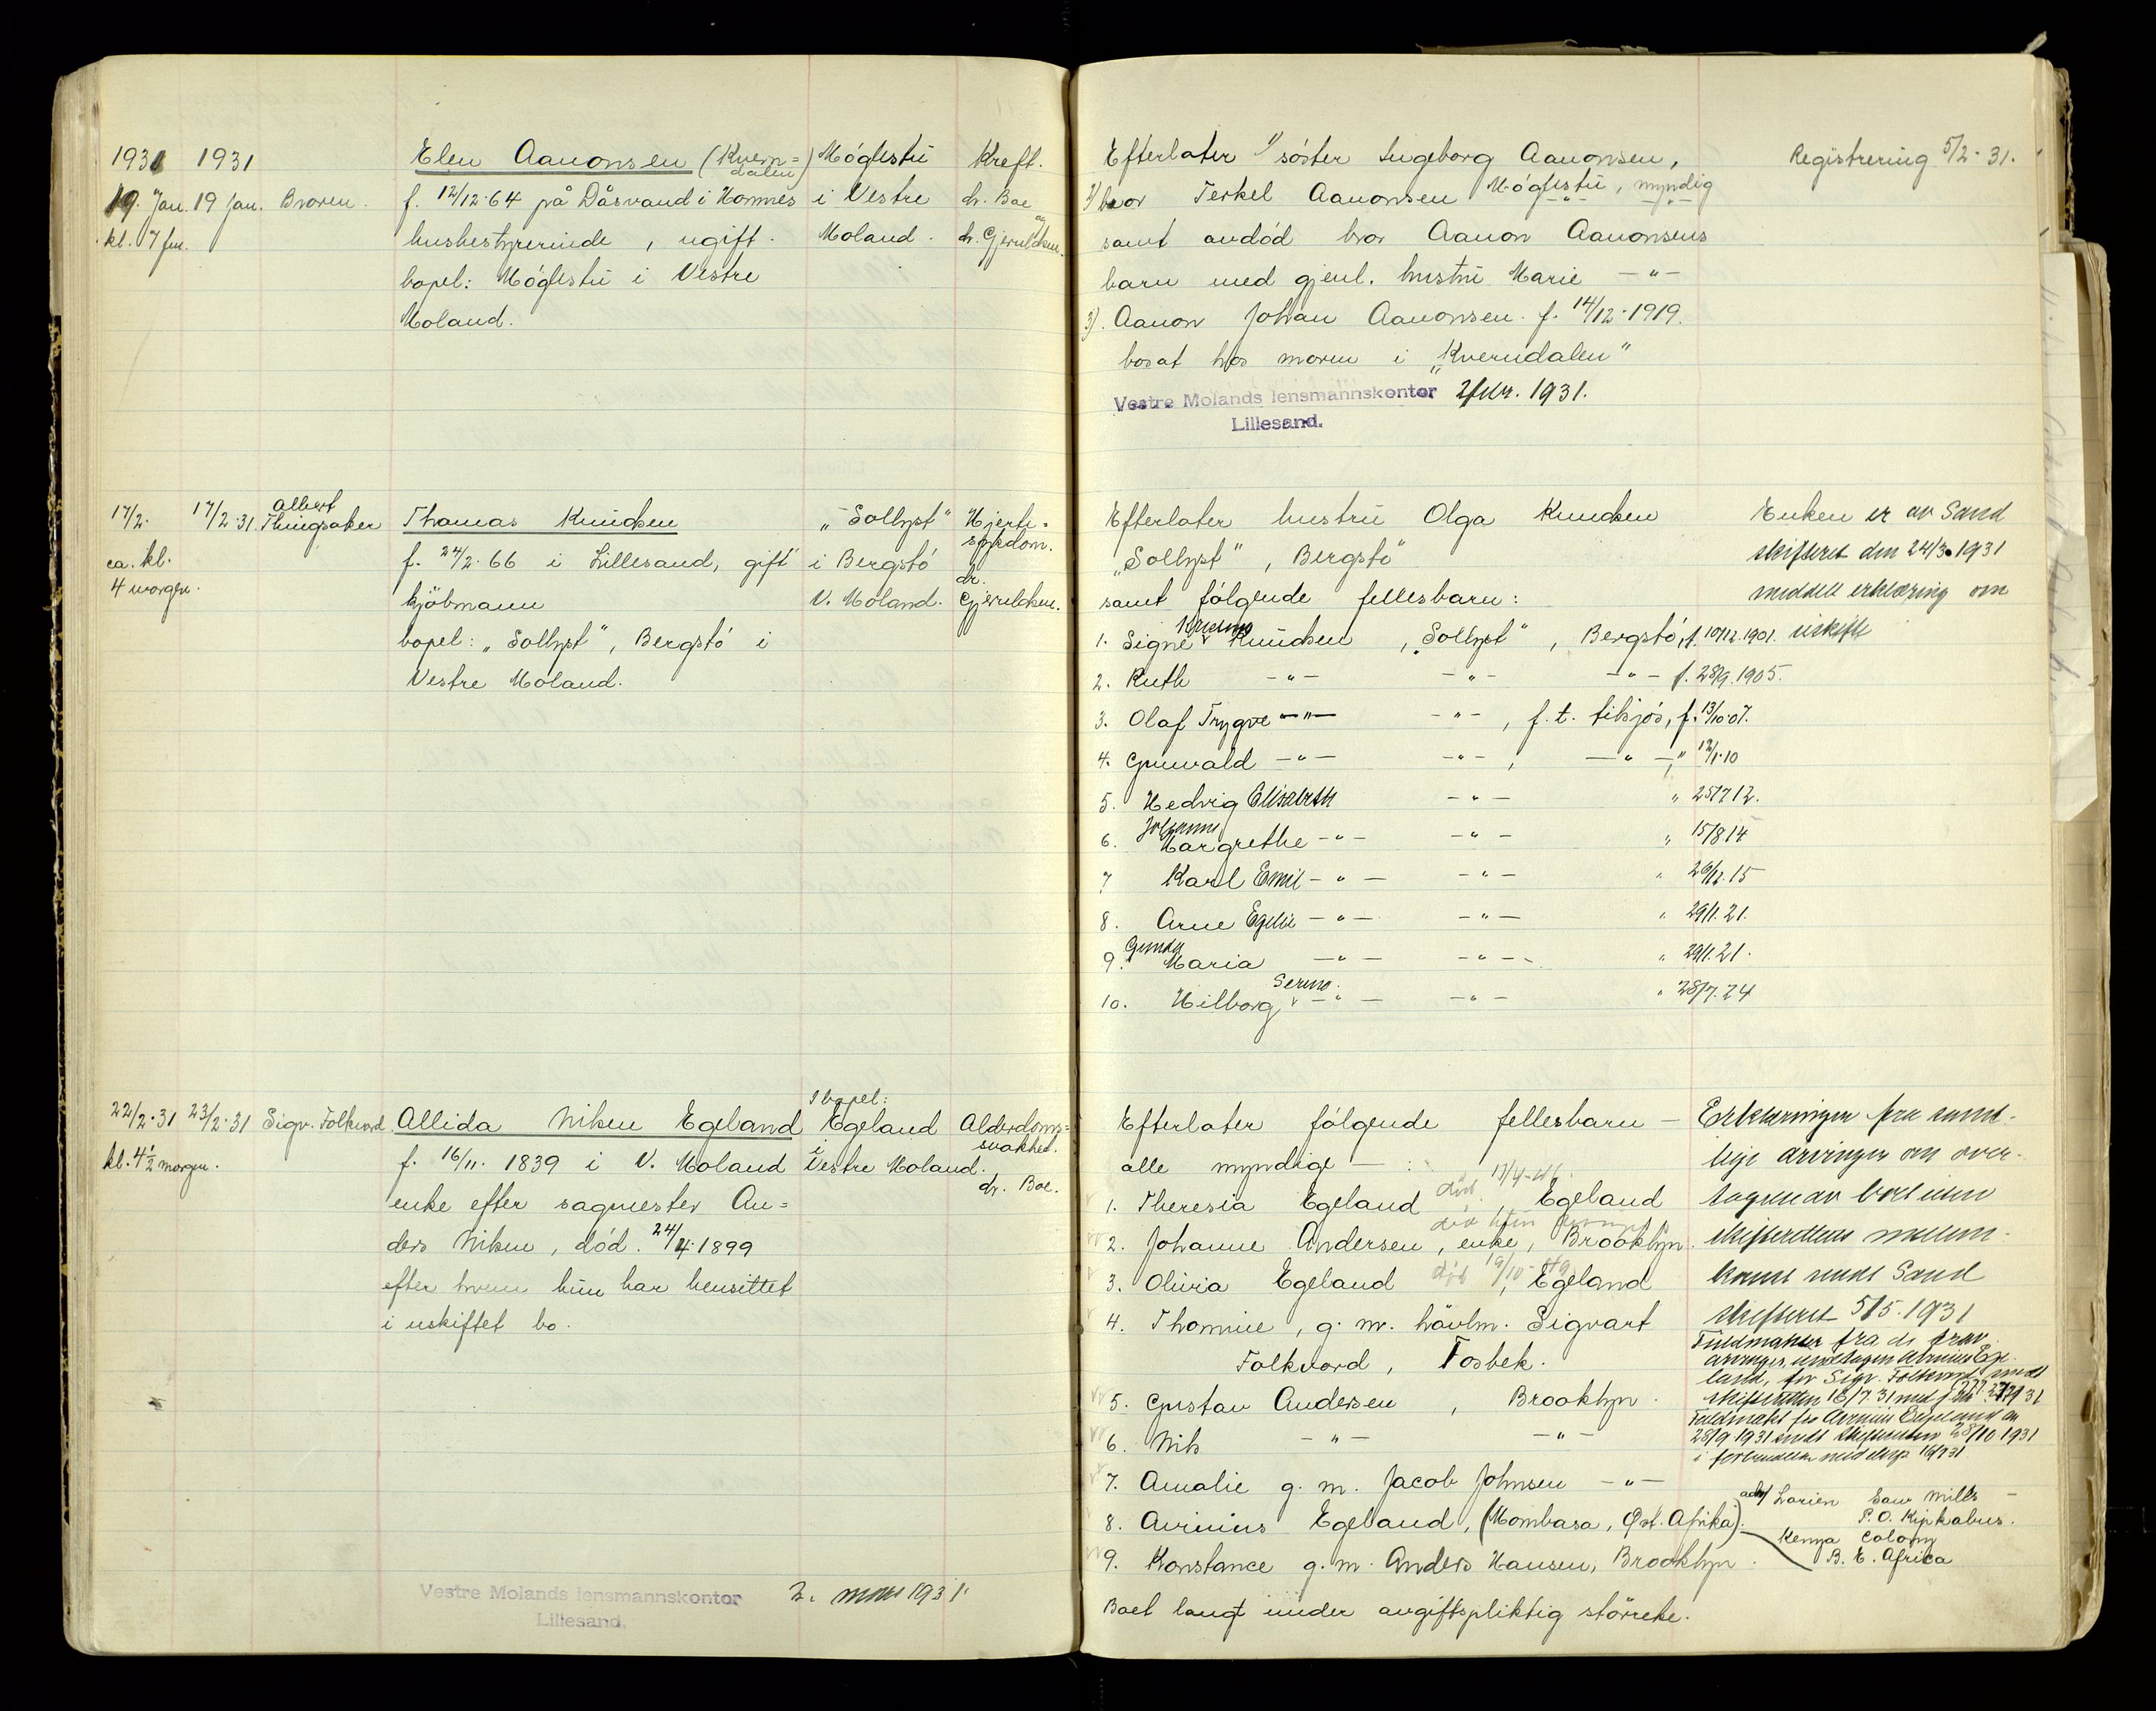 1931 1931 Elen Aanonsen (Kvern= Møglestu Kreft.
dalen)
19. Jan. 19 Jan. Broren. f. 12/12-64 på Dåsvand i Hornnes i Vestre dr. Boe
og
kl. 7 fm. husbestyrerinde, ugift. Moland. dr. Gjeruldsen.
bopel: Møglestu i Vestre
Moland.
17/2. 17/2-31. Albert
Thingsaker Thomas Knudsen "Sollyst" Hjerte=
sykdom.
ca. kl. f. 24/2-66 i Lillesand, gift i Bergstø dr.
4 morgen. kjøbmann V. Moland. Gjeruldsen.
bopel: "Sollyst", Bergstø i
Vestre Moland.
I bopel:
22/2-31 23/2-31 Sigv. Folkvord Allida Niken Egeland Egeland Alderdoms=
svakhet.
kl. 4½ morgen. f. 16/11. 1839 i V. Moland i Vestre Moland.
dr. Boe.
enke efter sagmester An=
ders Niken, død. 24/4-1899
efter hvem hun har hensittet
i uskiftet bo.
Vestre Molands lensmannskontor 2. mars 1931
Lillesand.
Efterlater 1) søster Ingeborg Aanonsen, Registrering 5/2-31.
2) bror Terkel Aanonsen Møglestu, myndig
samt avdød bror Aanon Aanonsens
barn med gjenl. hustru Marie -"-
3). Aanon Johan Aanonsen. f. 14/12-1919.
bosat hos moren i "Kverndalen"
Vestre Molands lensmannskontor 1931.
Lillesand.
Efterlater hustru Olga Knudsen Enken er av Sand
"Sollyst", Bergstø skifteret den 24/3.1931
samt følgende fellesbarn: meddelt erklæring om
1. Signe Knudsen, "Sollyst", Bergstø, f. 10/12.1901. uskifte
2. Ruth -"- -"- -"- f. 28/9.1905.
3. Olaf Trygve -"- -"-, f. t. tilsjøs, f. 13/10-07.
4. Gunvald -"- -"-, -"-, " 12/1-10
5. Hedvig Elisabeth -"- " 25/7 12.
Johanne
6. Margrethe -"- -"- " 15/8 14
7 Karl Emil -"- -"- " 26/12. 15
8. Arne Egelie -"- -"- " 29/1. 21.
Gunda
9. Maria -"- -"- " 29/1. 21.
10. Hilborg -"- -"- " 28/7. 24
Efterlater følgende fellesbarn — Erklæringer fra samt-
alle myndige — : lige arvinger om over-
død 17/4-46.
1. Theresia Egeland, Egeland tagen av boet
død
2. Johanne Andersen, enke, Brooklyn. skifterettens mellem-
død 19/10-49
3. Olivia Egeland, Egeland komst sendt Sand
4. Thomine, g. m. høvlm. Sigvart skifteret 5/5.1931
Folkvord, Tosbek.
Fuldmakter fra de frav.
arvinger, undtagen Avinius Ege-
land, for Sigv. Folkvord sendt
5. Gustav Andersen, Brooklyn. skifteretten 16/7.31 med
Fuldmakt fra Avinius Egeland av
6. Nils -"- -"- 28/9 1931 sendt skifteretten 28/10 1931
7. Amalie g. m. Jacob Johnsen -"-
8. Avinius Egeland, (Mombasa, Øst. Afrika). adr/ Larien Saw Mills
P.O. Kipkabus.
Kenya Colony
B. E. Africa
9. Konstance g. m. Anders Hansen, Brooklyn.
Boet langt under avgiftspliktig størrelse.